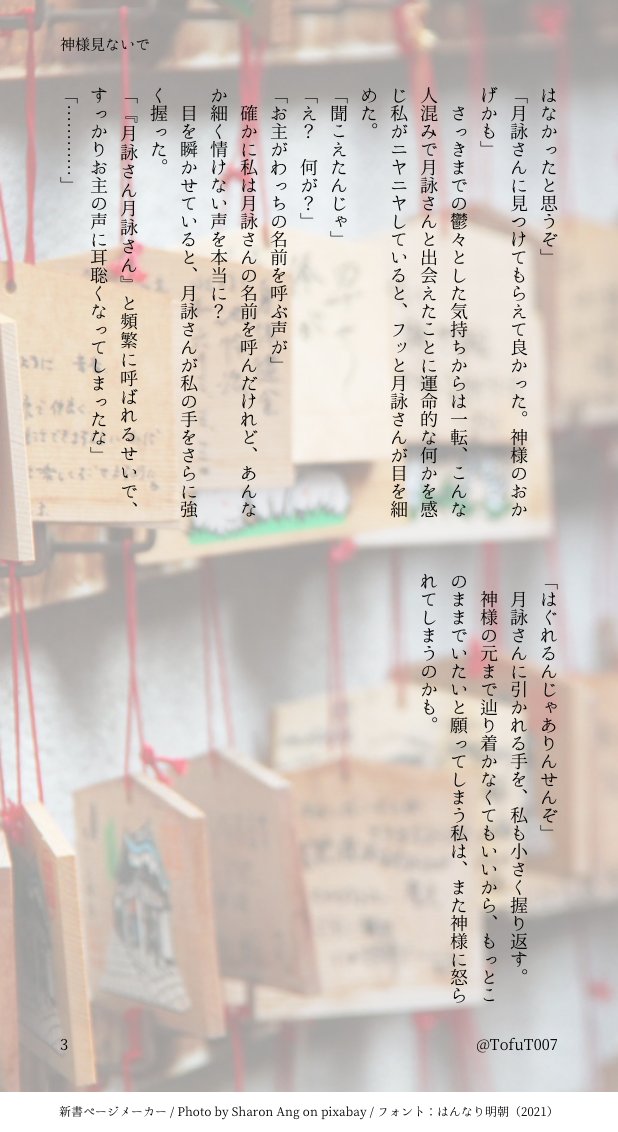 神様見ないで
はなかったと思うぞ」
「月詠さんに見つけてもらえて良かった。神様のおか
げかも」
さっきまでの鬱々とした気持ちからは一転、こんな
人混みで月詠さんと出会えたことに運命的な何かを感
じ私がニヤニヤしていると、フッと月詠さんが目を細
めた。
「聞こえたんじゃ」
「え？　何が？」
「お主がわっちの名前を呼ぶ声が」
確かに私は月詠さんの名前を呼んだけれど、あんな
か細く情けない声を本当に？
目を瞬かせていると、月詠さんが私の手をさらに強
く握った。
「『月詠さん月詠さん』と頻繁に呼ばれるせいで、
すっかりお主の声に耳聡くなってしまったな」
「…………」
「はぐれるんじゃありんせんぞ」
月詠さんに引かれる手を、私も小さく握り返す。
神様の元まで辿り着かなくてもいいから、もっとこ
のままでいたいと願ってしまう私は、また神様に怒ら
れてしまうのかも。
3
@TofuT007
新書ページメーカー / Photo by Sharon Ang on pixabay / フォント：はんなり明朝（2021）